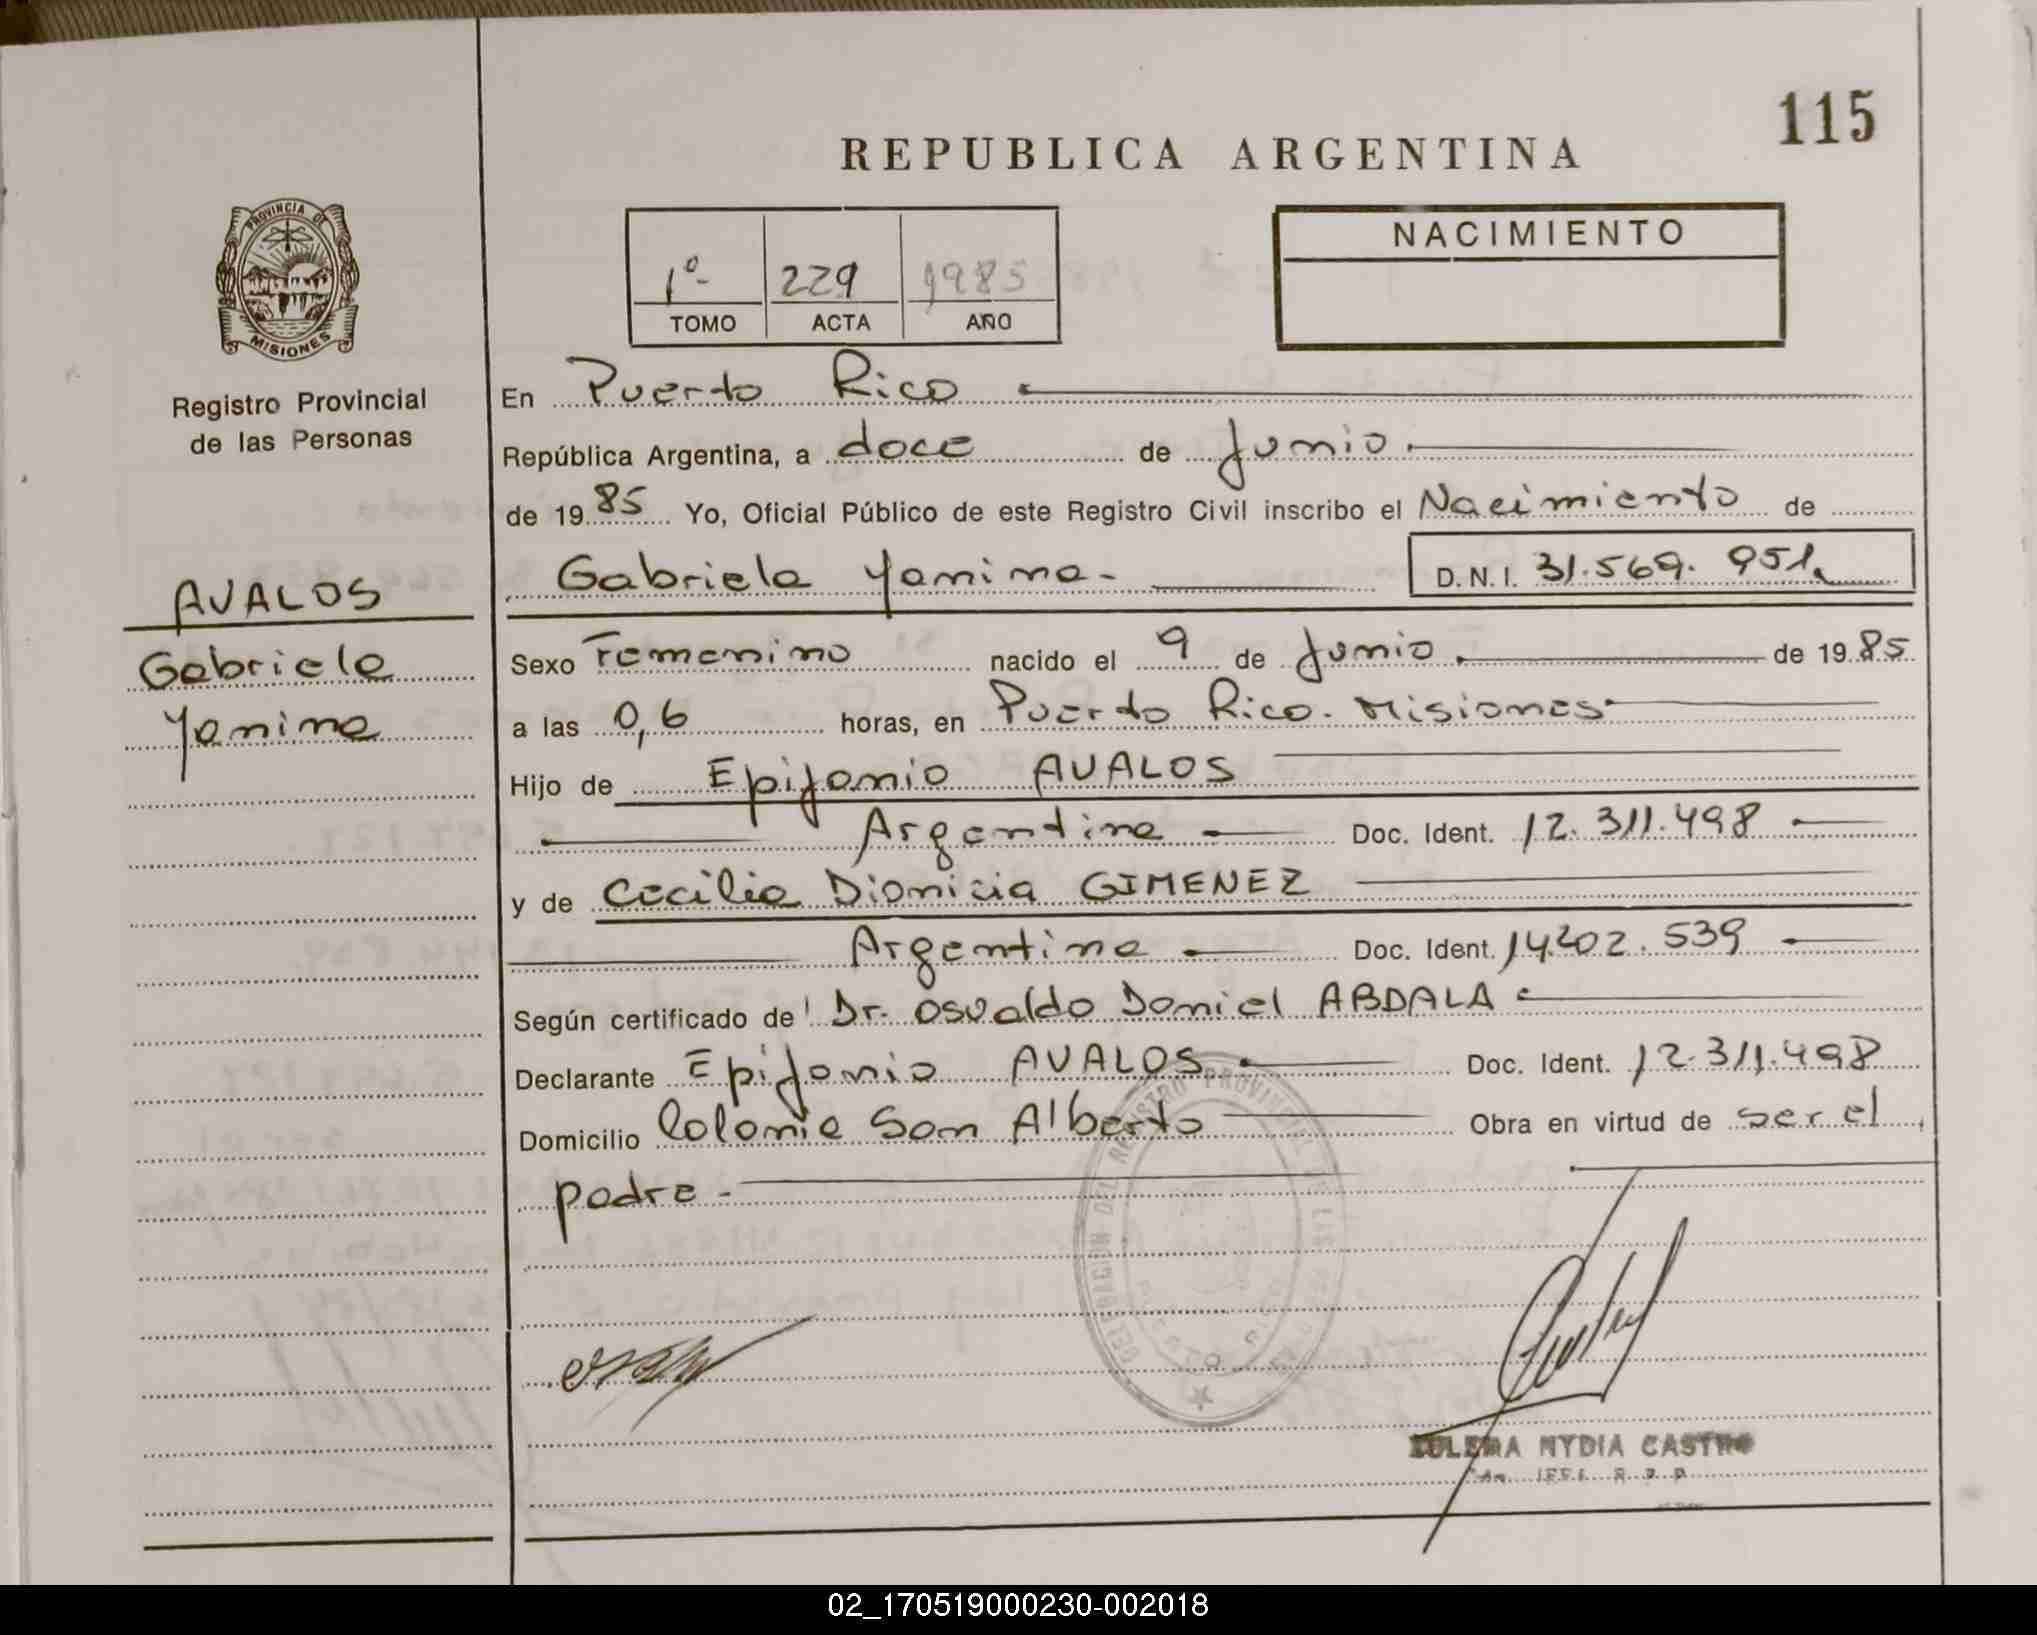 115
REPUBLICA ARGENTINA
PROVINCIA DE
MISIONES
Registro Provincial
de las Personas
1º- 229 1985
TOMO ACTA AÑO
NACIMIENTO
En Puerto Rico
República Argentina, a doce de Junio
de 1985 Yo, Oficial Público de este Registro Civil inscribo el Nacimiento de
Gabriela Yanina- D.N.I. 31.569.951
AVALOS
Gabriela
Yanina
Sexo Femenino nacido el 9 de Junio de 1985
a las 0,6 horas, en Puerto Rico. Misiones
Hijo de Epifanio AVALOS
Argentina Doc. Ident. 12.311.498
y de Cecilia Dionicia GIMENEZ
Argentina Doc. Ident. 14.202.539
Según certificado de Dr. Osvaldo Daniel ABDALA
Declarante Epifanio AVALOS Doc. Ident. 12.311.498
Domicilio Colonia San Alberto Obra en virtud de ser el
padre -
DELEGACION DEL REGISTRO PROVINCIAL DE LAS
ZULEMA NYDIA CASTRO
02_170519000230-002018